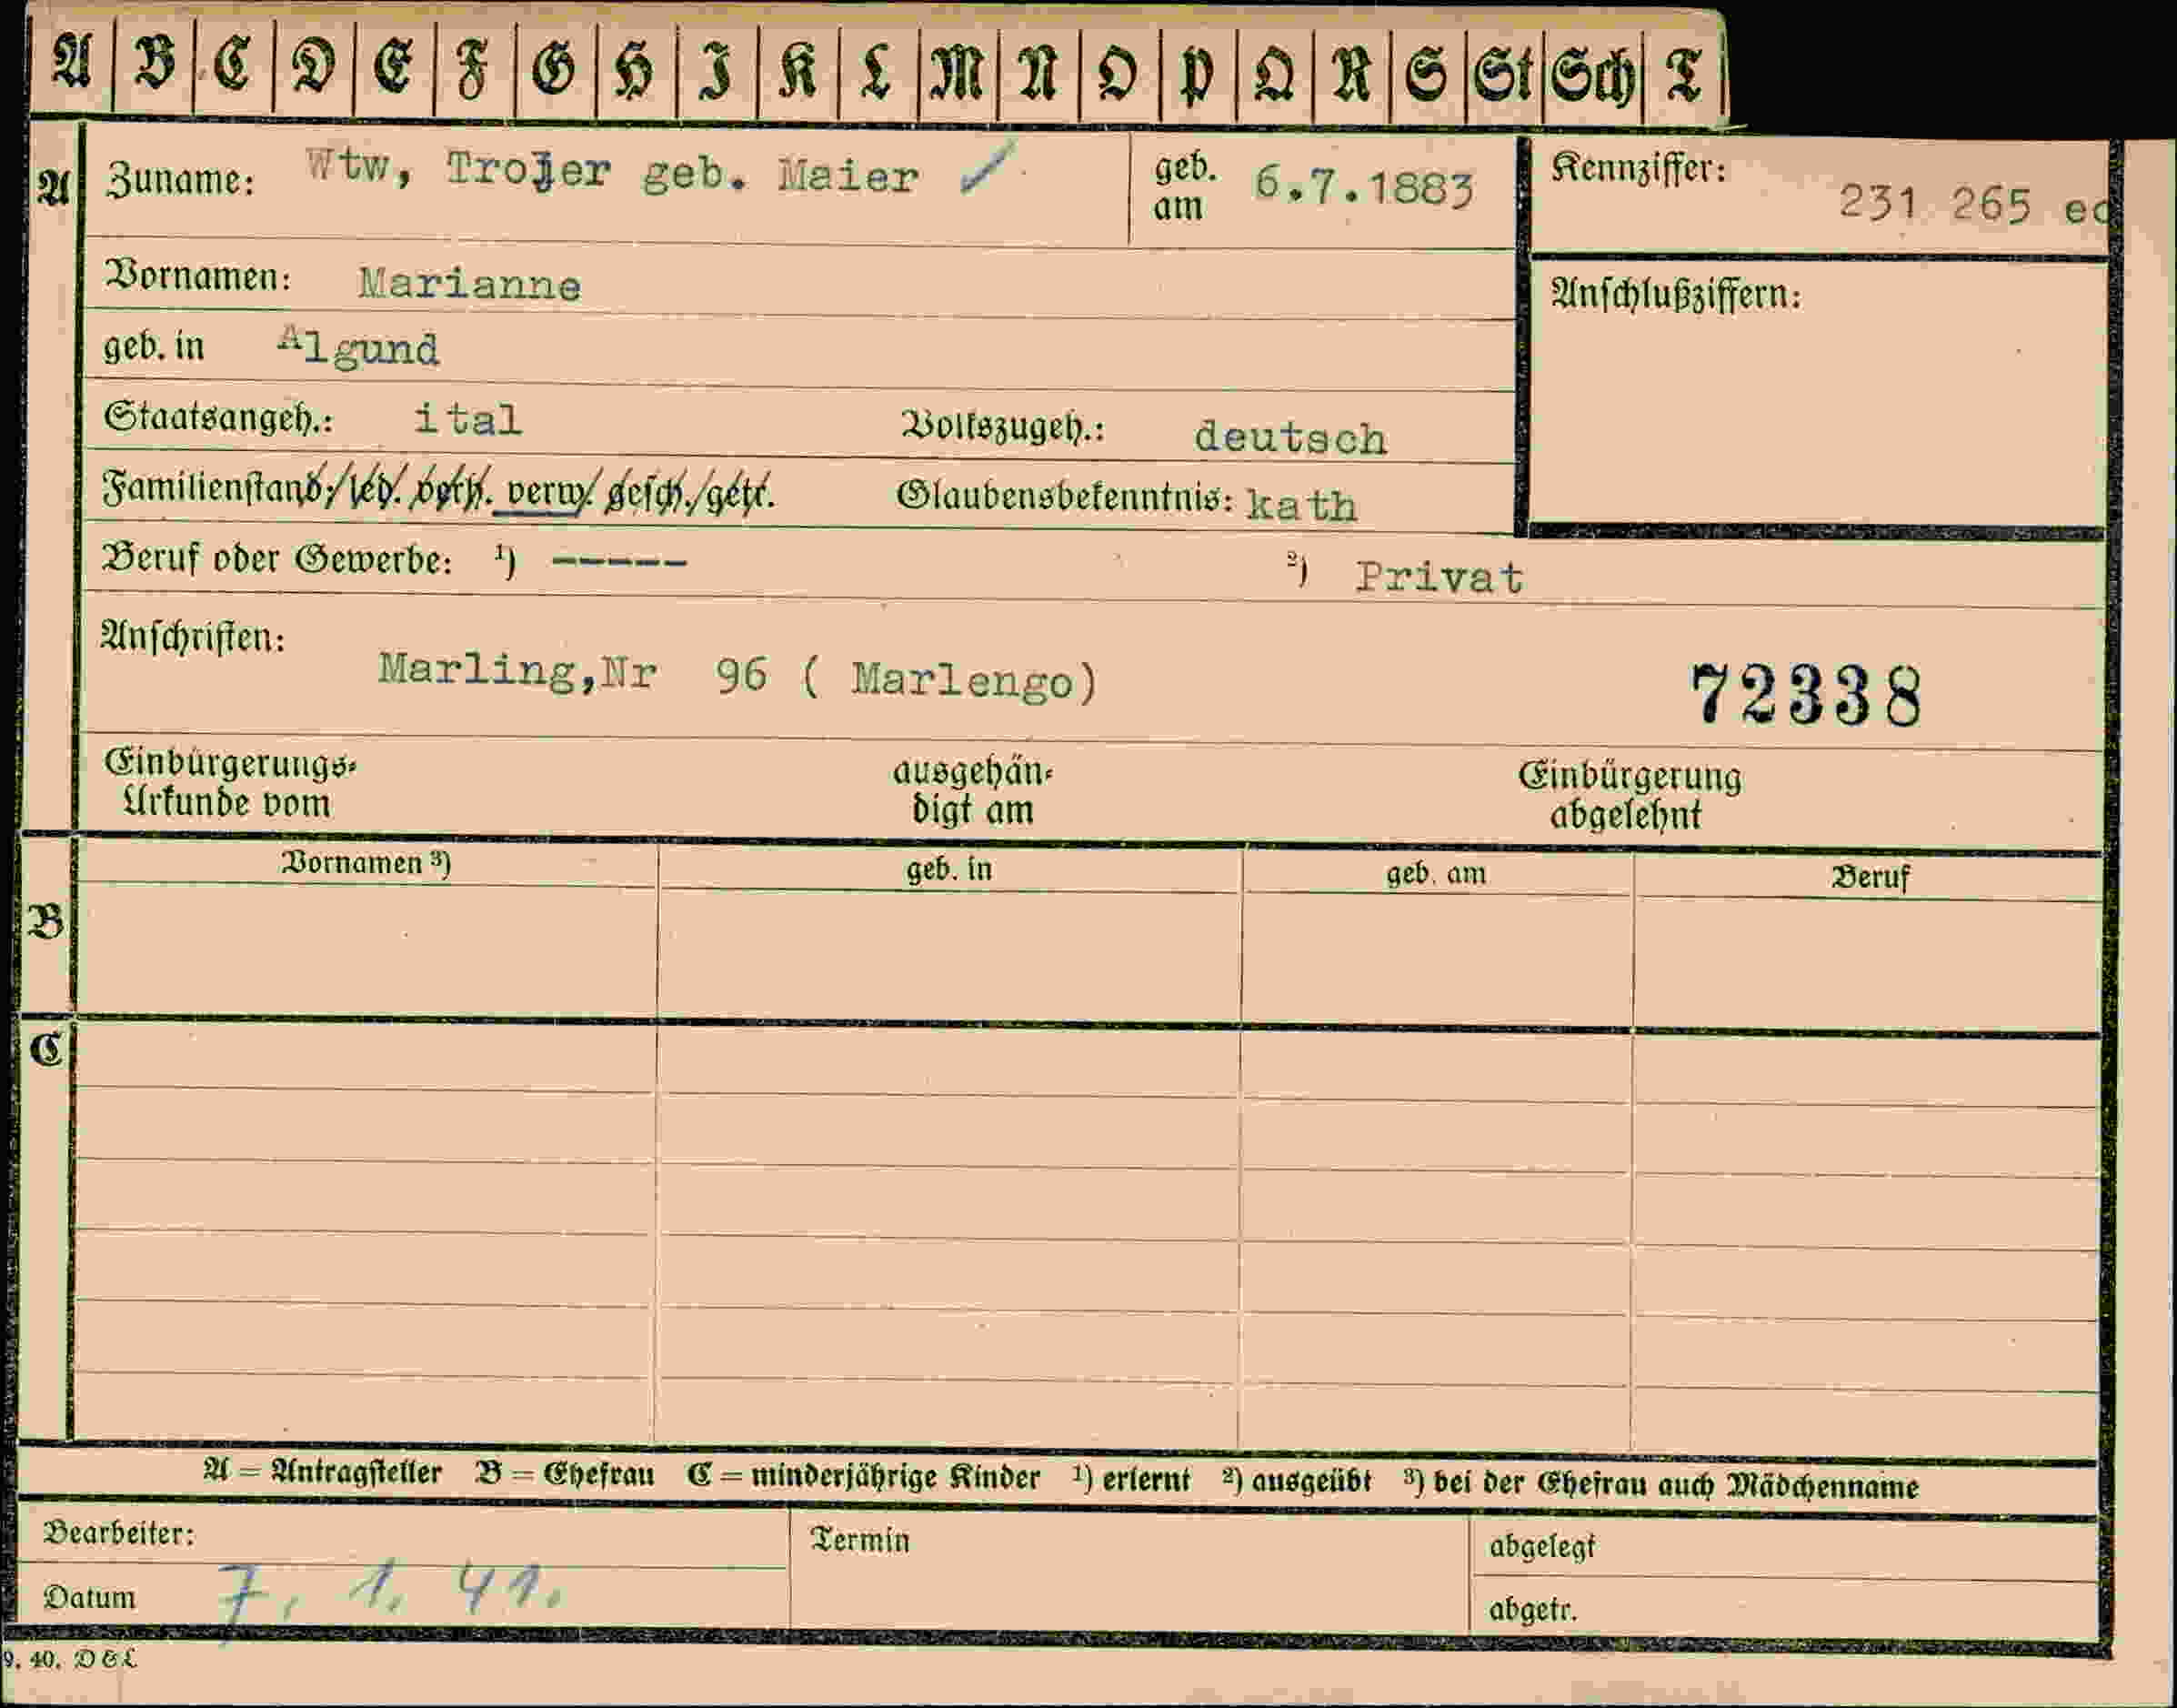 A B C D E F G H I K L M N O P Q R S St Sch T
A Zuname: Wtw, Trojer geb. Maier geb. am 6.7.1883 Kennziffer: 231 265 ec
Vornamen: Marianne Anschlußziffern:
geb. in Algund
Staatsangeh.: ital Volkszugeh.: deutsch
Familienstand: led. verh. verw. gesch. getr. Glaubensbekenntnis: kath
Beruf oder Gewerbe: 1) ----- 2) Privat
Anschriften:
Marling,Nr 96 ( Marlengo) 72338
Einbürgerungs- ausgehän- Einbürgerung
Urkunde vom digt am abgelehnt
Vornamen 3) geb. in geb. am Beruf
B
C
A = Antragsteller B = Ehefrau C = minderjährige Kinder 1) erlernt 2) ausgeübt 3) bei der Ehefrau auch Mädchenname
Bearbeiter: Termin abgelegt
Datum 7. 1. 41. abgetr.
9. 40. D & L